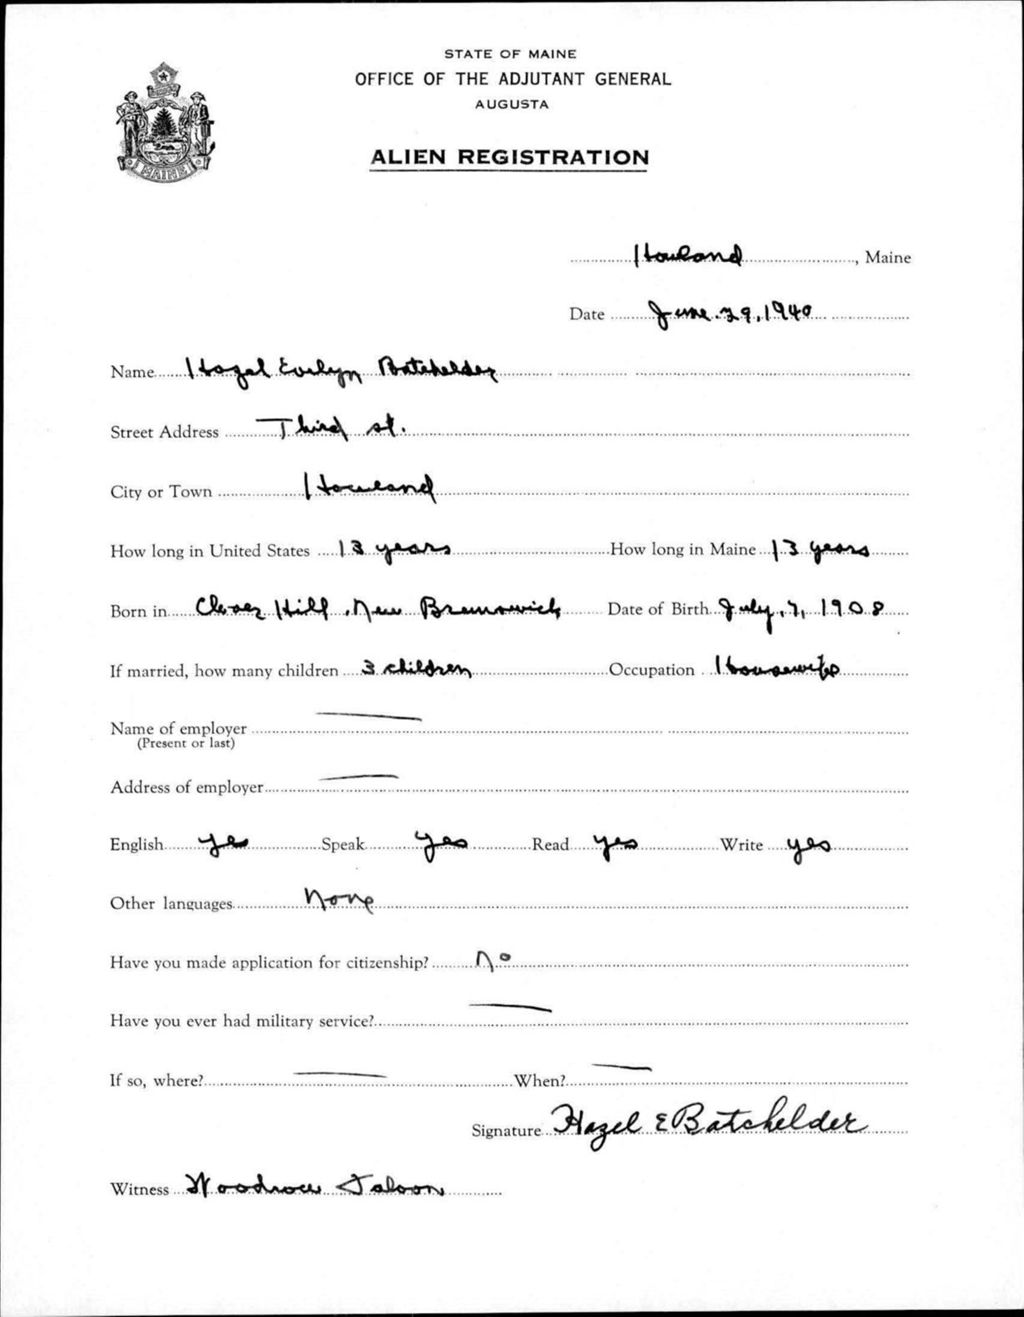 STATE OF MAINE
OFFICE OF THE ADJUTANT GENERAL
AUGUSTA
ALIEN REGISTRATION
MAINE
Howland, Maine
Date June 29, 1940
Name Hazel Evelyn Batchelder
Street Address Third st.
City or Town Howland
How long in United States 13 years How long in Maine 13 years
Born in Clover Hill, New Brunswick Date of Birth July, 7, 1908
If married, how many children 3 children Occupation Housewife
Name of employer —
(Present or last)
Address of employer —
English yes Speak yes Read yes Write yes
Other languages None
Have you made application for citizenship? No
Have you ever had military service? —
If so, where? — When? —
Signature Hazel E Batchelder
Witness Woodrow